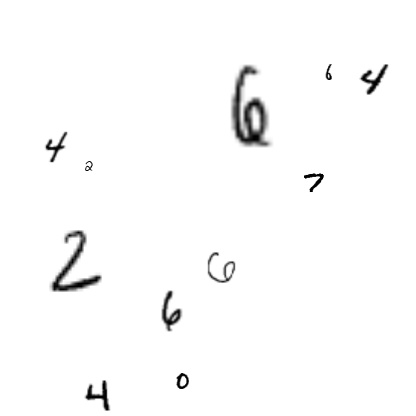 6 6 4
4 2
7
2 6
6
4 0